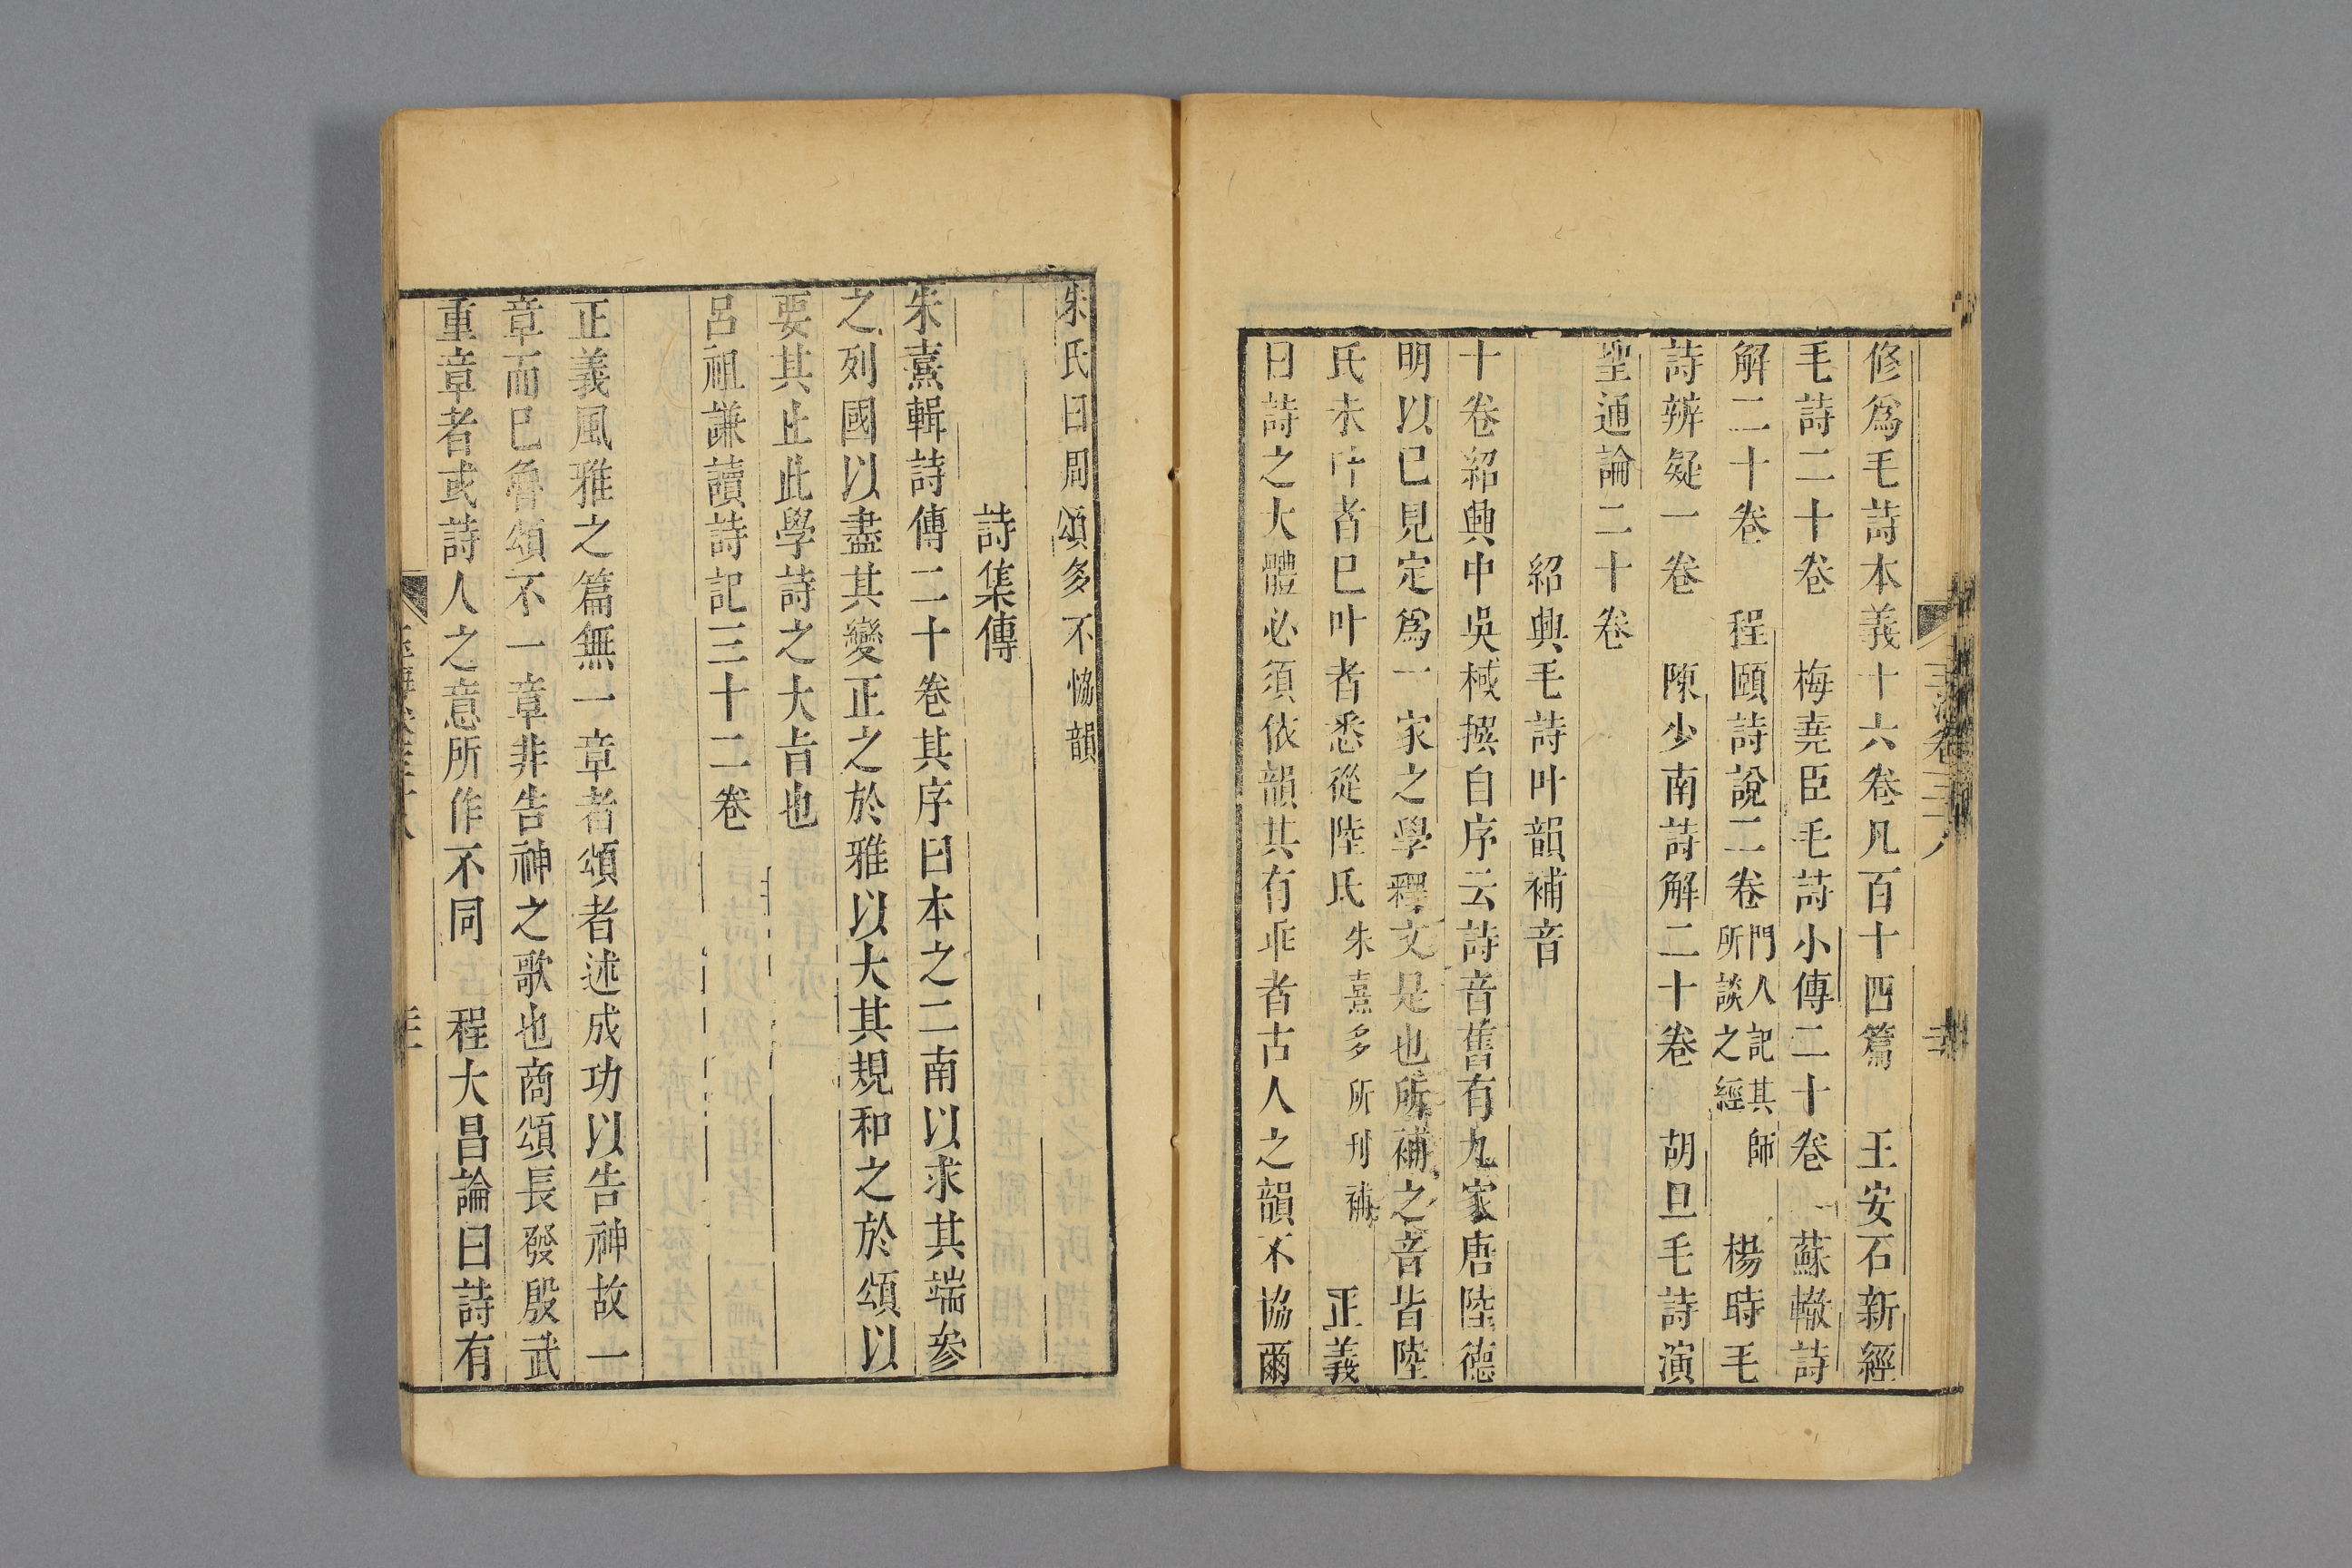 修爲毛詩本義十六卷凡百十四篇　王安石新經
毛詩二十卷　梅堯臣毛詩小傳二十卷　蘇轍詩
解二十卷　程頤詩說二卷門人記其師所談之經　楊時毛
詩辨疑一卷　陳少南詩解二十卷　胡旦毛詩演
聖通論二十卷
紹興毛詩叶韻補音
十卷紹興中吳棫撰自序云詩音舊有九家唐陸德
明以已見定爲一家之學釋文是也所補之音皆陸
氏未叶者已叶者悉從陸氏朱熹多所刊補　正義
曰詩之大體必須依韻其有乖者古人之韻不協爾
朱氏曰周頌多不恊韻
詩集傳
朱熹輯詩傳二十卷其序曰本之二南以求其端參
之列國以盡其變正之於雅以大其規和之於頌以
要其止此學詩之大旨也
呂祖謙讀詩記三十二卷
正義風雅之篇無一章者頌者述成功以告神故一
章而已魯頌不一章非告神之歌也商頌長發殷武
重章者或詩人之意所作不同　程大昌論曰詩有